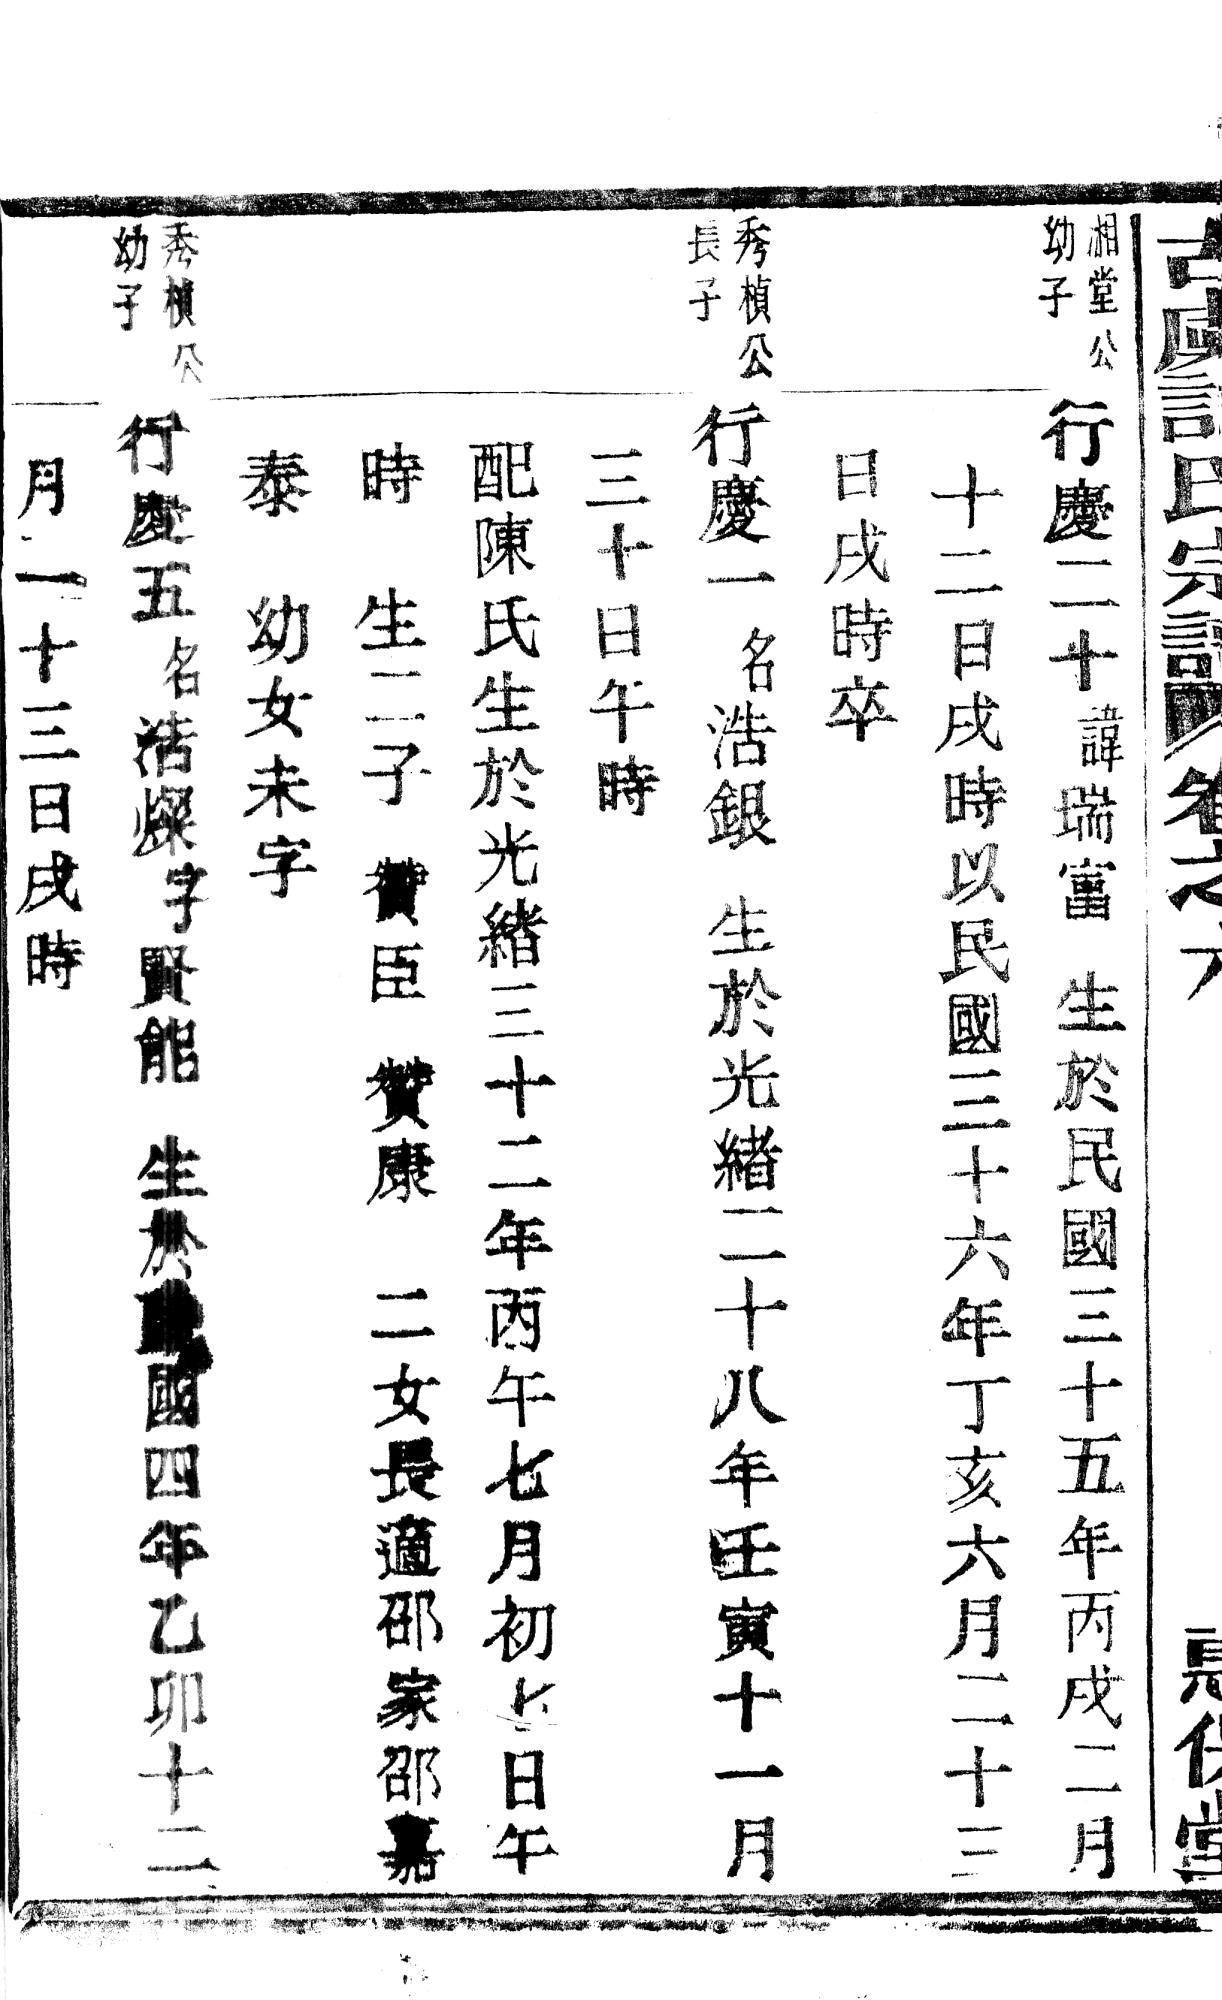 氏宗譜 卷之六
保堂
湘堂公
幼子
行慶二十諱瑞富 生於民國三十五年丙戌二月
十二日戌時以民國三十六年丁亥六月二十三
日戌時卒
秀楨公
長子
行慶一 名浩銀 生於光緒二十八年壬寅十一月
三十日午時
配陳氏生於光緒三十二年丙午七月初七日午
時 生二子 贊臣 贊康 二女長適邵家邵嘉
泰 幼女未字
秀楨公
幼子
行慶五名浩燦字賢能 生於國四年乙卯十二
月二十三日戌時